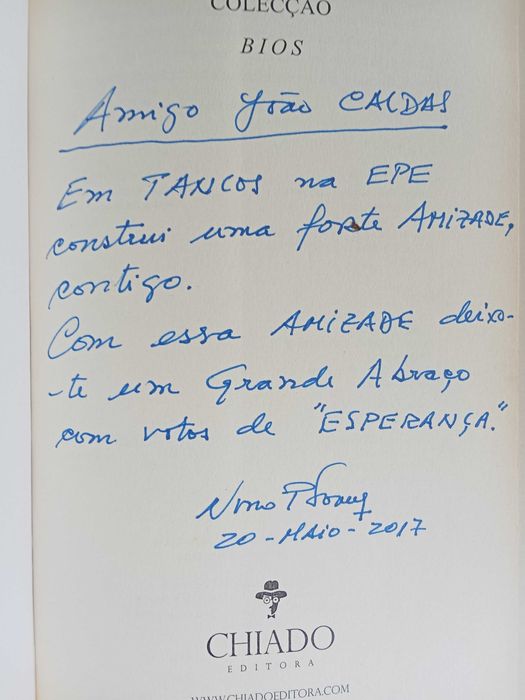 COLECÇÃO
BIOS
Amigo João CALDAS
Em TANCOS na EPE
construi uma forte AMIZADE,
contigo.
Com essa AMIZADE deixo-
-te um Grande Abraço
com votos de "ESPERANÇA."
Nuno
20-MAIO-2017
CHIADO
EDITORA
WWW.CHIADOEDITORA.COM